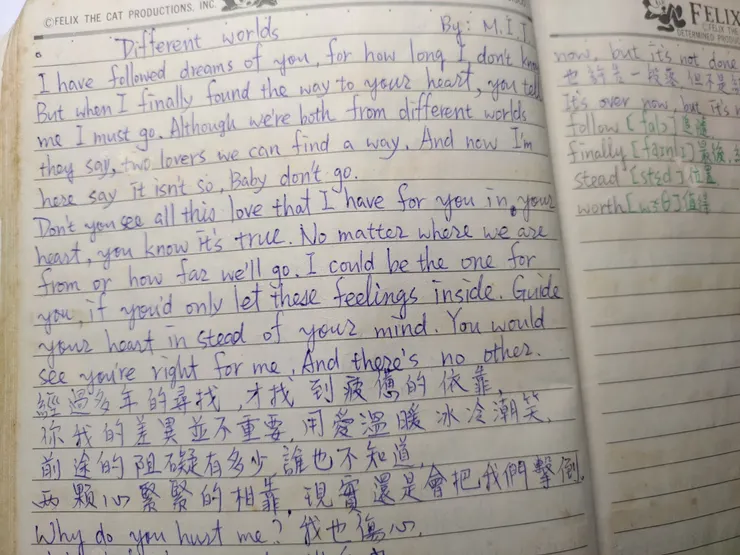 ©FELIX THE CAT PRODUCTIONS. INC.
Different worlds By: M.I.J
I have followed dreams of you, for how long I don't
But when I finally found the way to your heart, you
me I must go. Although we're both from different worlds
they say, two lovers we can find a way. And now I'm
here say it isn't so, Baby don't go.
Don't you see all this love that I have for you in, your
heart, you know it's true. No matter where we are
from or how far we'll go. I could be the one for
you, if you'd only let these feelings inside. Guide
your heart in stead of your mind. You would
see you're right for me. And there's no other.
經過多年的尋找, 才找到疲憊的依靠,
你我的差異並不重要, 用愛溫暖冰冷潮笑,
前途的阻礙有多少, 誰也不知道,
兩顆心緊緊的相靠, 現實還是會把我們擊倒.
Why do you hurt me? 我也傷心,
FELIX
©FELIX THE
DETERMINED PRODUC
now, but it's not done
也許是一被棄, 但不是
It's over now, but it's
follow [falo] 追隨
finally [faɪnlɪ] 最後,
stead [stɛd] 位置
worth [wɝθ] 值得